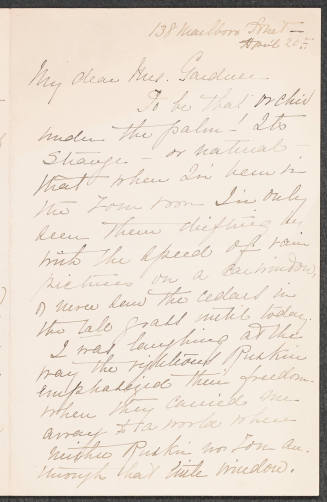 138 Marlboro Street
April 20th
My dear Mrs. Gardner
To be that orchid
under the palm! Its
strange – or natural –
that when I've been in
the room I've only
seen them drifting by
with the speed of rain
pictures on a car window,
I never saw the cedars in
the tall grass until today.
I was laughing at the
way the righteous Ruskin
emphasized their freedom
when they carried me
away to a world where
neither Ruskin nor
through that little window.